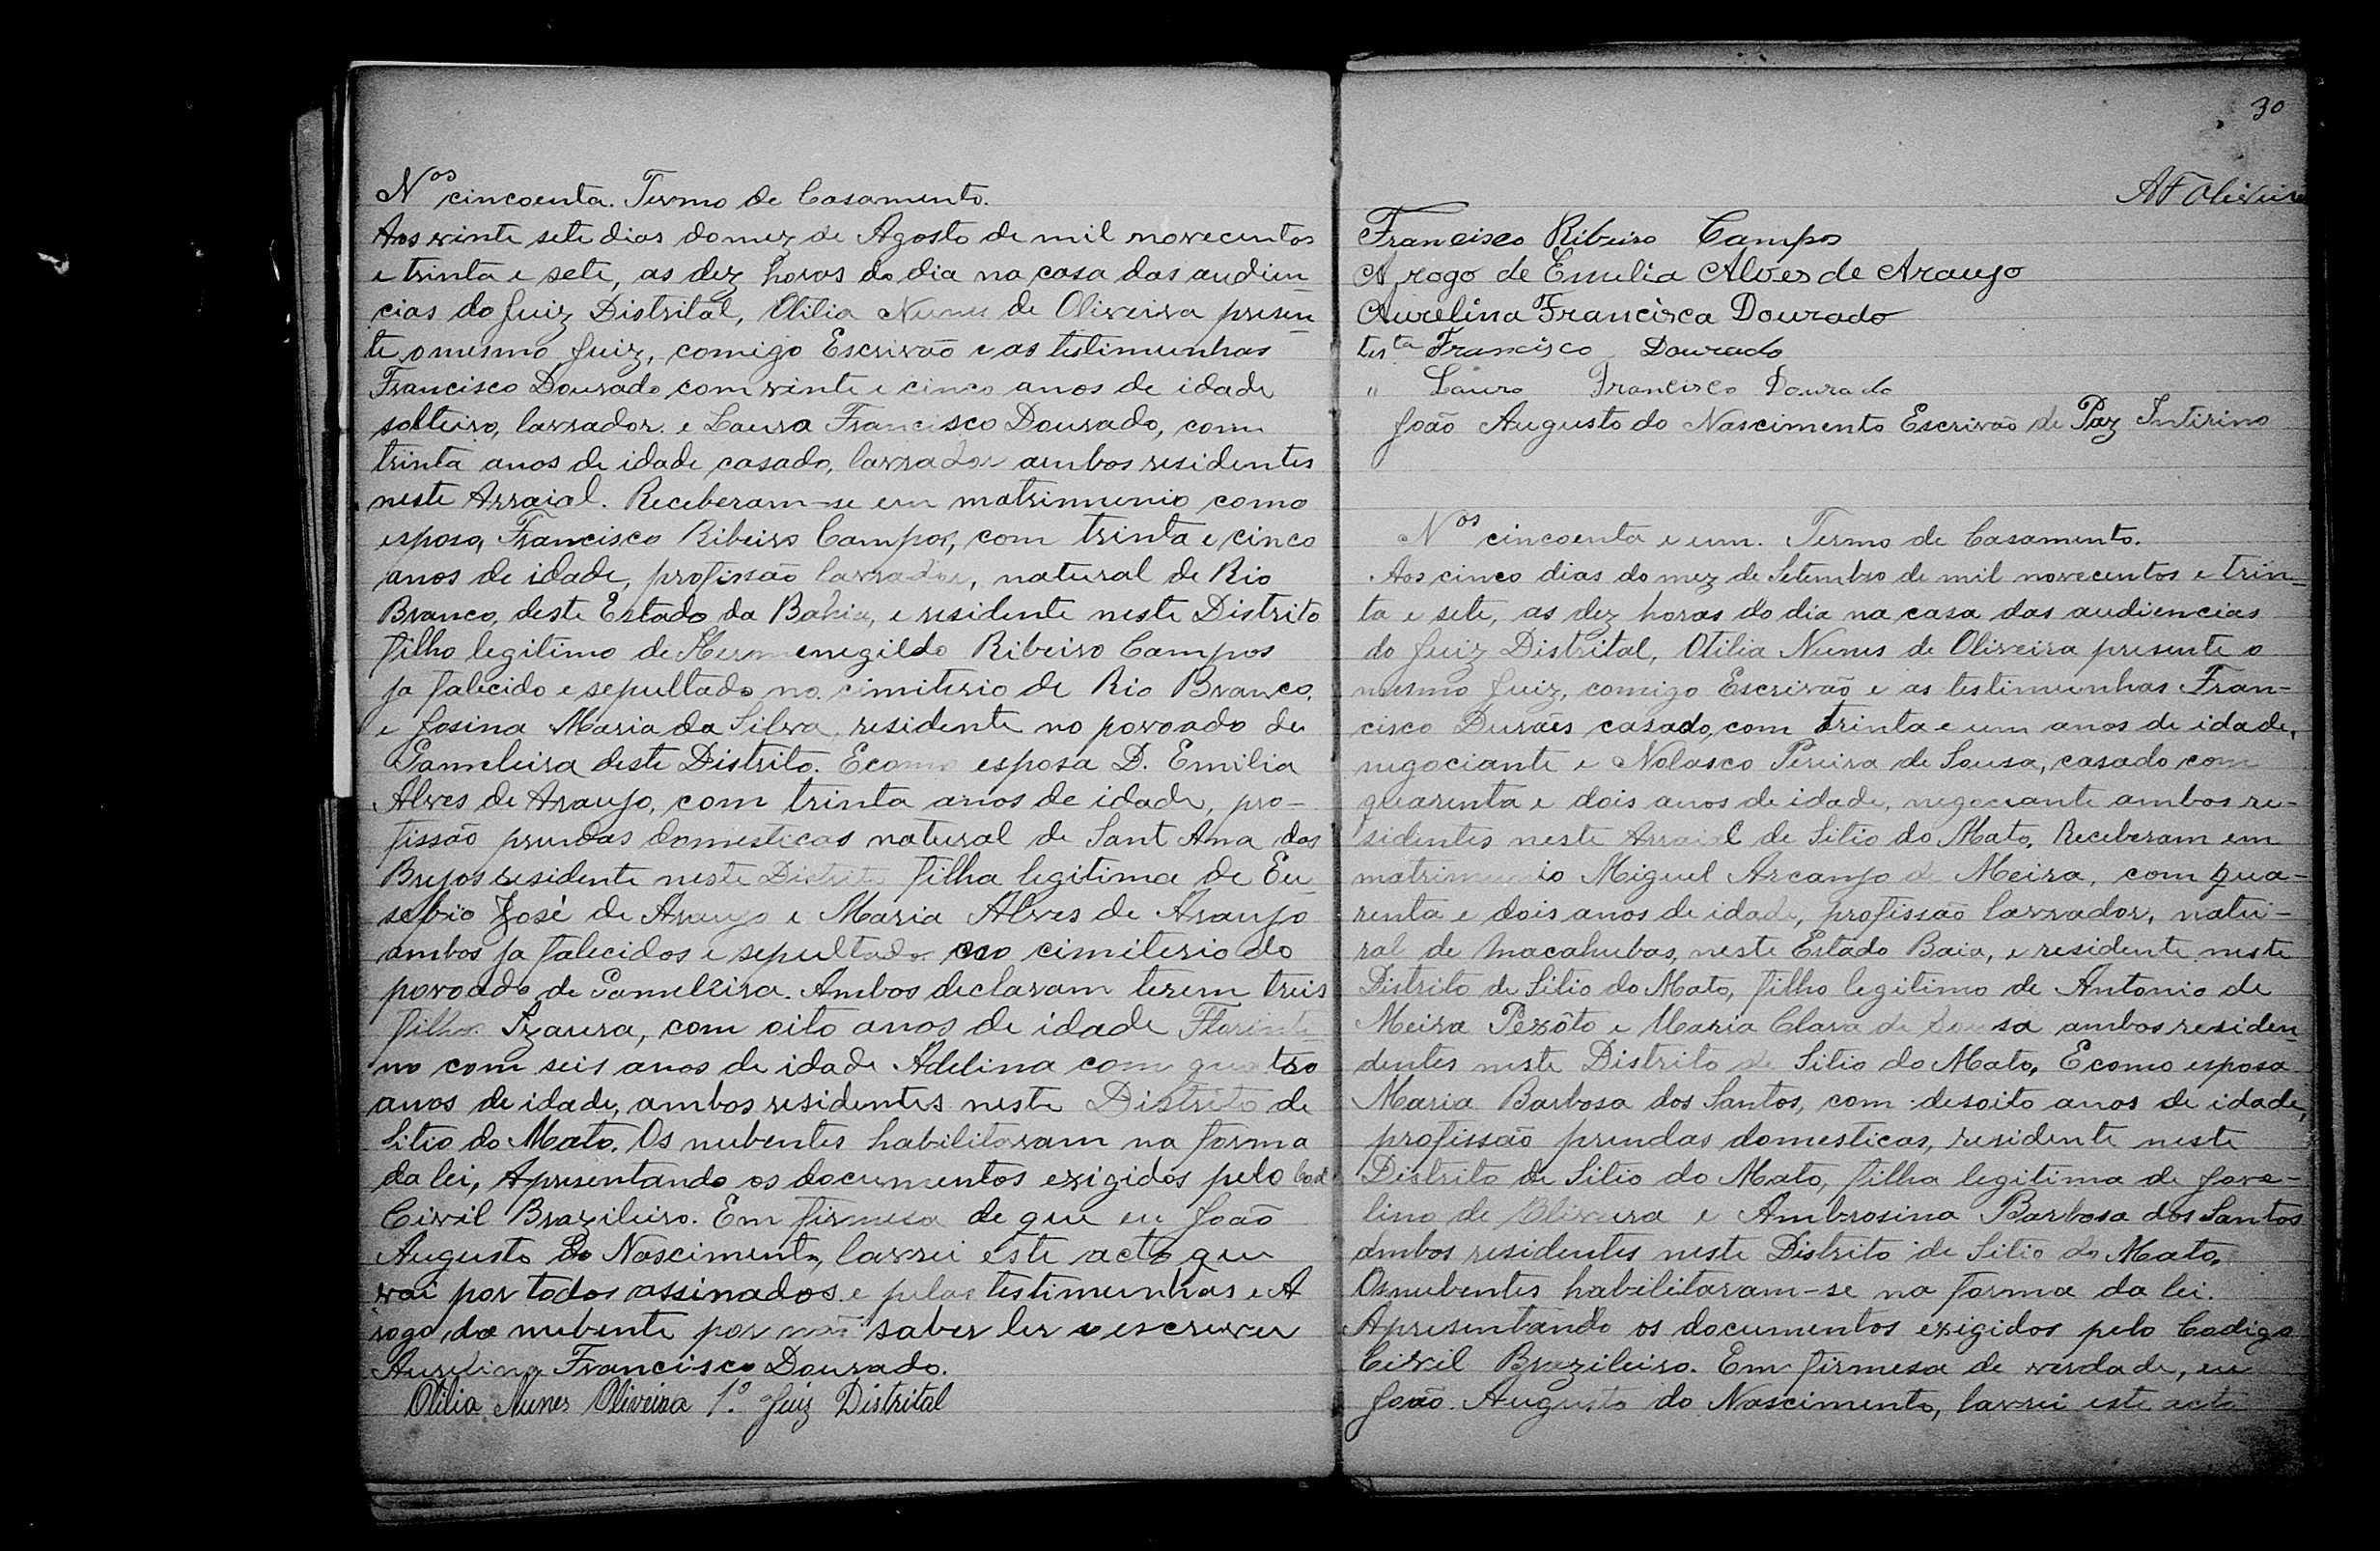 Nos cincoenta. Termo de Casamento.
Aos vinte sete dias do mez de Agosto de mil novecentos
e trinta e sete, as dez horas do dia na casa das audien_
cias do Juiz Distrital, Otilia Nunes de Oliveira presen_
te o mesmo Juiz, comigo Escrivão e as testimunhas
Francisco Dourado com vinte e cinco anos de idade
solteiro, lavrador e Lauro Francisco Dourado, com
trinta anos de idade, casado, lavrador ambos residentes
neste Arraial. Receberam-se em matrimunio como
esposo, Francisco Ribeiro Campos, com trinta e cinco
anos de idade, profissão lavrador, natural de Rio
Branco, deste Estado da Bahia, e residente neste Distrito
filho legitimo de Hermenegildo Ribeiro Campos
ja falecido e sepultado no cimiterio de Rio Branco,
e Josina Maria da Silva residente no povoado de
Gameleira deste Distrito. E como esposa D. Emilia
Alves de Araujo, com trinta anos de idade, pro-
fissão prendas domesticas natural de Sant Ana dos
Brejos residente neste Distrito filha legitima de Eu_
sebio José de Araujo e Maria Alves de Araujo
ambos ja falecidos e sepultado no cimiterio do
povoado de Gameleira. Ambos declaram terem treis
filhos Izaura, com oito anos de idade Florinti_
no com seis anos de idade Adelina com quatro
anos de idade, ambos residentes neste Distrito de
Sitio do Mato. Os nubentes habilitaram na forma
da lei, Apresentando os documentos exigidos pelo Cod.
Civil Brazileiro. Em firmesa de que eu João
Augusto do Nascimento, lavrei este acto que
vai por todos assinados e pelas testimunhas e A
rogo da nubente por não saber ler e escrever
Aurelino Francisco Dourado.
Otilia Nunes Oliveira 1.º Juiz Distrital
30
AF Oliveira
Francisco Ribeiro Campos
A rogo de Emilia Alves de Araujo
Aurelina Francisca Dourado
testa Francisco Dourado
" Lauro Francisco Dourado
João Augusto do Nascimento Escrivão de Paz Intirino
Nos cincoenta e um. Termo de Casamento.
Aos cinco dias do mez de Setembro de mil novecentos e trin_
ta e sete, as dez horas do dia na casa das audiencias
do Juiz Distrital, Otilia Nunes de Oliveira presente o
mesmo Juiz, comigo Escrivão e as testimunhas Fran-
cisco Durães casado, com trinta e um anos de idade,
negociante e Nolasco Pereira de Sousa, casado com
quarenta e dois anos de idade, negociante ambos re-
sidentes neste Arraial de Sitio do Mato, Receberam em
matrimunio Miguel Arcanjo de Meira, com qua-
renta e dois anos de idade, profissão lavrador, natu-
ral de Macahubas, neste Estado Baia, e residente neste
Distrito de Sitio do Mato, filho legitimo de Antonio de
Meira Pexôto e Maria Clara de Sousa ambos residen_
dentes neste Distrito de Sitio do Mato, E como esposa
Maria Barbosa dos Santos, com desoito anos de idade,
profissão prendas domesticas, residente neste
Distrito de Sitio do Mato, filha legitima de Jove-
lino de Oliveira e Ambrosina Barbosa dos Santos
ambos residentes neste Distrito de Sitio do Mato.
Os nubentes habilitaram-se na forma da lei.
Apresentando os documentos exigidos pelo Codigo
Civil Brazileiro. Em firmesa de verdade, eu
João Augusto do Nascimento, lavrei este acto